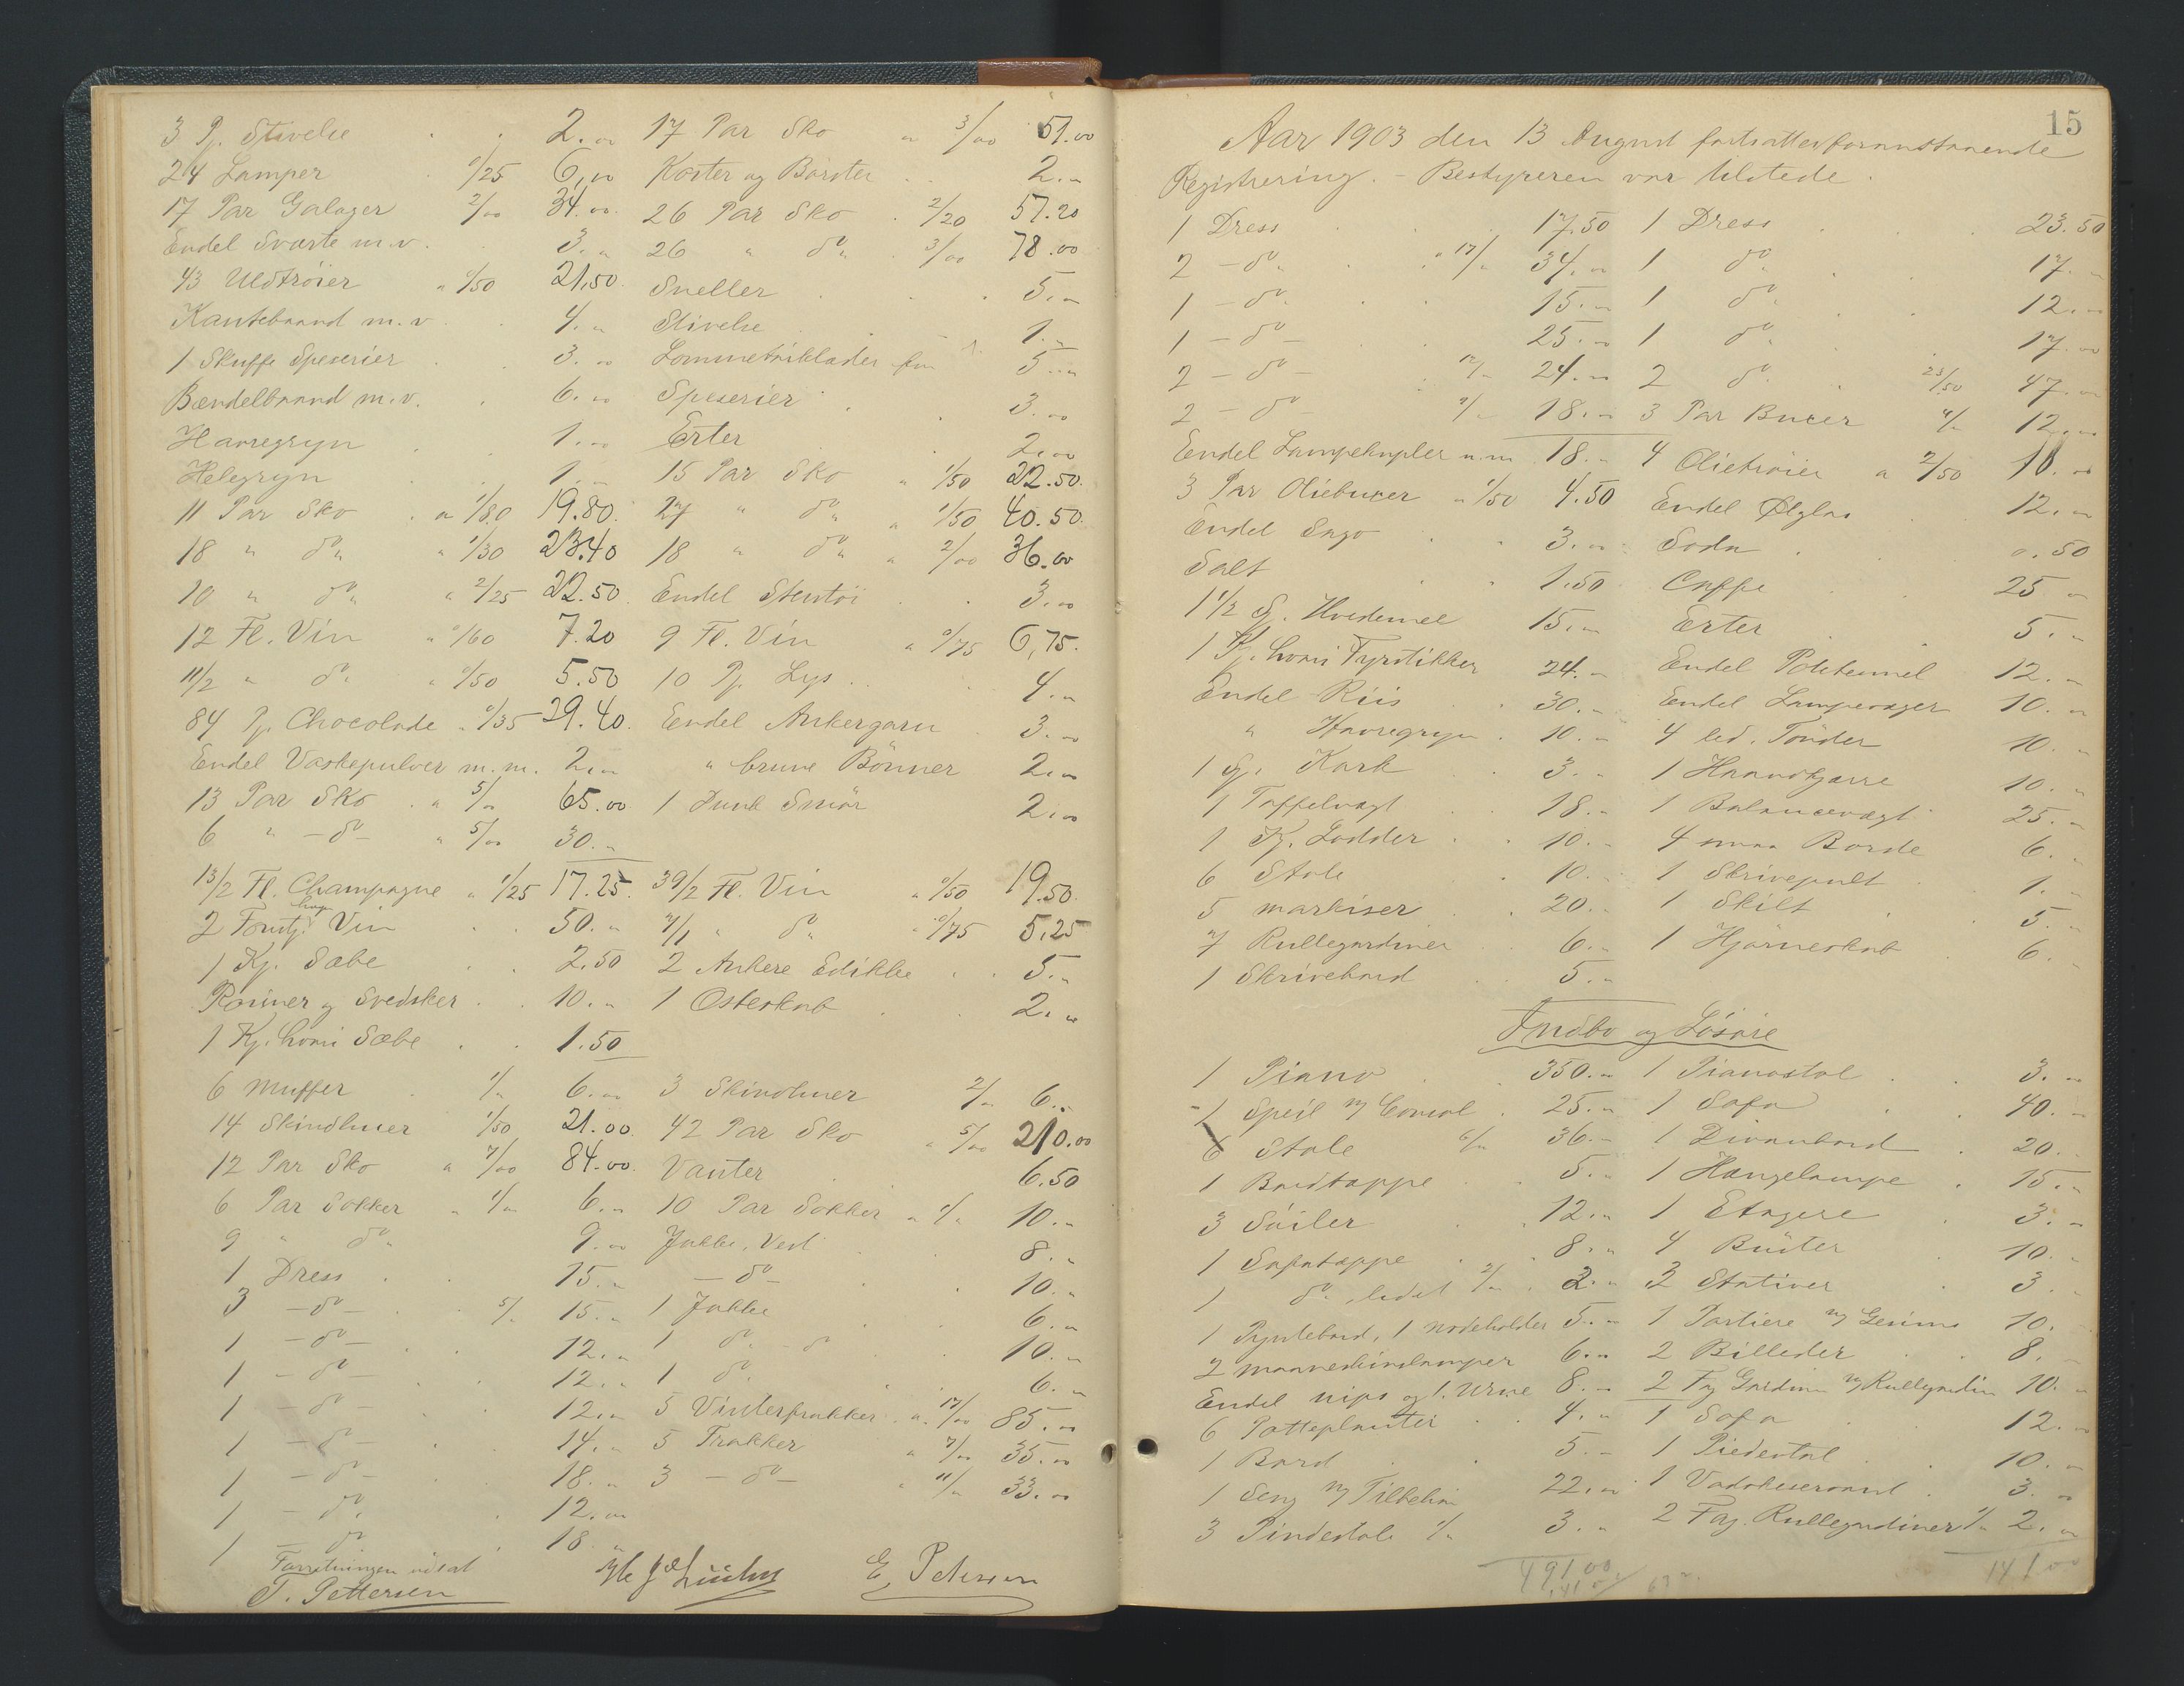 3 Pj. Stivelse 2.00 17 Par Sko a 3/00 51.00
24 Lamper 0/25 6,00 Koster og Börster 2.„
17 Par Galoger 2/00 34.00 26 Par Sko 2/20 57.20
Endel Sværte m.v. 3.„ 26 „ do „ 3/00 78.00
43 Uldtröier a 0/50 21,50 Sneller 5.„
Kantebaand m.v. 4.„ Stivelse 1.„
1 Skuffe Speserier 3.00 5.„
Bændelbaand m.v. 6.00 Speserier 3.00
Havregryn 1.00 Erter 2.00
Helegryn 1.„ 15 Par Sko „ 1/50 22.50
11 Par Sko a 1/80 19.80 27 „ do „ a 1/50 40.50
18 „ do „ „ 1/30 23.40 18 „ do „ a 2/00 36.00
10 „ do „ „ 2/25 22.50 Endel Stentöi 3.00
12 Fl. Vin „ 0/60 7.20 9 Fl. Vin a 0/75 6,75
11/2 „ do „ „ 0/50 5.50 10 Pj. Lys 4.„
84 Pj. Chocolade „ 0/35 29.40 Endel Ankergarn 3.00
Endel Vaskepulver m.m. 2.00 „ brune Bönner 2.00
13 Par Sko „ 5/00 65.00 1 Dunk Smör 2.00
6 „ - do - „ 5/00 30.„
13/2 Fl. Champagne „ 1/25 17.25 39/2 Fl. Vin „ 0/50 19.50
2 Vin 50.„ 7/1 „ do „ 0/75 5.25
1 Kj. Sæbe 2.50 2 Ankere Edikke 5.„
Rosiner og Svedsker 10.„ 1 Osteskab 2.„
1 Kj. Sæbe 1.50
6 Muffer 1/„ 6.00 3 Skindluer 2/„ 6.„
14 Skindluer 1/50 21.00 42 Par Sko „ 5/00 210.00
12 Par Sko a 7/00 84.00 Vanter 6.50
6 Par Sokker „ 1/„ 6.„ 10 Par Sokker „ 1/„ 10.„
9 „ do „ 9.00 Jakke, Vest 8.„
1 Dress 15.„ - do - 10.„
3 - do - 5/„ 15.„ 1 Jakke 6.„
1 - do - 12.„ 1 do „ 10.„
1 - do - 12.„ 1 do 6.„
1 - do - 12.„ 5 Vinterfrakker a 17/00 85.00
1 - do - 14.„ 5 Frakker „ 7/00 35.00
1 - do - 18.„ 3 - do - „ 11/„ 33.00
1 - do 12.00
1 - do 18.„
Forretningen udsat
T. Pettersen E. Petersen
15
Aar 1903 den 13 August fortsattes foranstaaende
Registrering. - Bestyreren var tilstede.
1 Dress 17.50 1 Dress 23.50
2 - do „ a 17/„ 34.00 1 do „ 17.„
1 - do „ 15.„ 1 do „ 12.„
1 - do - 25.„ 1 do „ 17.00
2 - do - 12/„ 24.„ 2 do „ 23/50 47.„
2 - do - 9/„ 18.„ 3 Par Buxer 4/„ 12.„
Endel Lampekupler m.m 18.„ 4 Olietröier a 2/50 10.00
3 Par Oliebuxer a 1/50 4.50 Endel Ölglas 12.„
Endel Sago 3.00 Soda 0.50
Salt 1.50 Caffe 25.„
1 1/2 S. Hvedemel 15.„ Erter 5.„
1 Kj. Fyrstikker 24.„ Endel Potetemel 12.„
Endel Riis 30.„ Endel Lampevæger 10.„
„ Havregryn 10.„ 4 led. Tönder 10.„
1 S. Kork 3.„ 1 Haandkjærre 10.„
1 Taffelvægt 18.„ 1 Balancevægt 25.„
1 Kj. Lodder 10.„ 4 smaa Borde 6.„
6 Stole 10.„ 1 Skrivepult 1.„
5 markiser 20.„ 1 Skilt 5.„
7 Rullegardiner 6.„ 1 Hjörneskab 6.„
1 Skrivebord 5.„
Indbo og Lösöre
1 Piano 350.„ 1 Pianostol 3.00
1 Speil m/ Consol 25.„ 1 Sofa 40.„
6 Stole 6/„ 36.„ 1 Divanbord 20.„
1 Bordtæppe 5.„ 1 Hængelampe 15.„
3 Söiler 12.„ 1 Etagere 3.„
1 Sofatæppe 8.„ 4 Büster 10.„
1 do „ 2.„ 3 Stativer 3.„
1 Pyntebord, 1 nodeholder 5.„ 1 Portiere m/ Gesims 10.
2 maaneskinslamper 6.„ 2 Billeder 8.„
Endel nips og 1. Urne 8.„ 2 Fag Gardiner m/ Rullegardin 10.„
6 Potteplanter 4.„ 1 Sofa 12.„
1 Bord 5.„ 1 Piedestal 10.„
1 Seng m/ Tilbehör 22.„ 1 Vadskeservant 3.„
3 Pindestole 1/„ 3.„ 2 Fag. Rullegardiner 1/„ 2.„
491.00 141.00